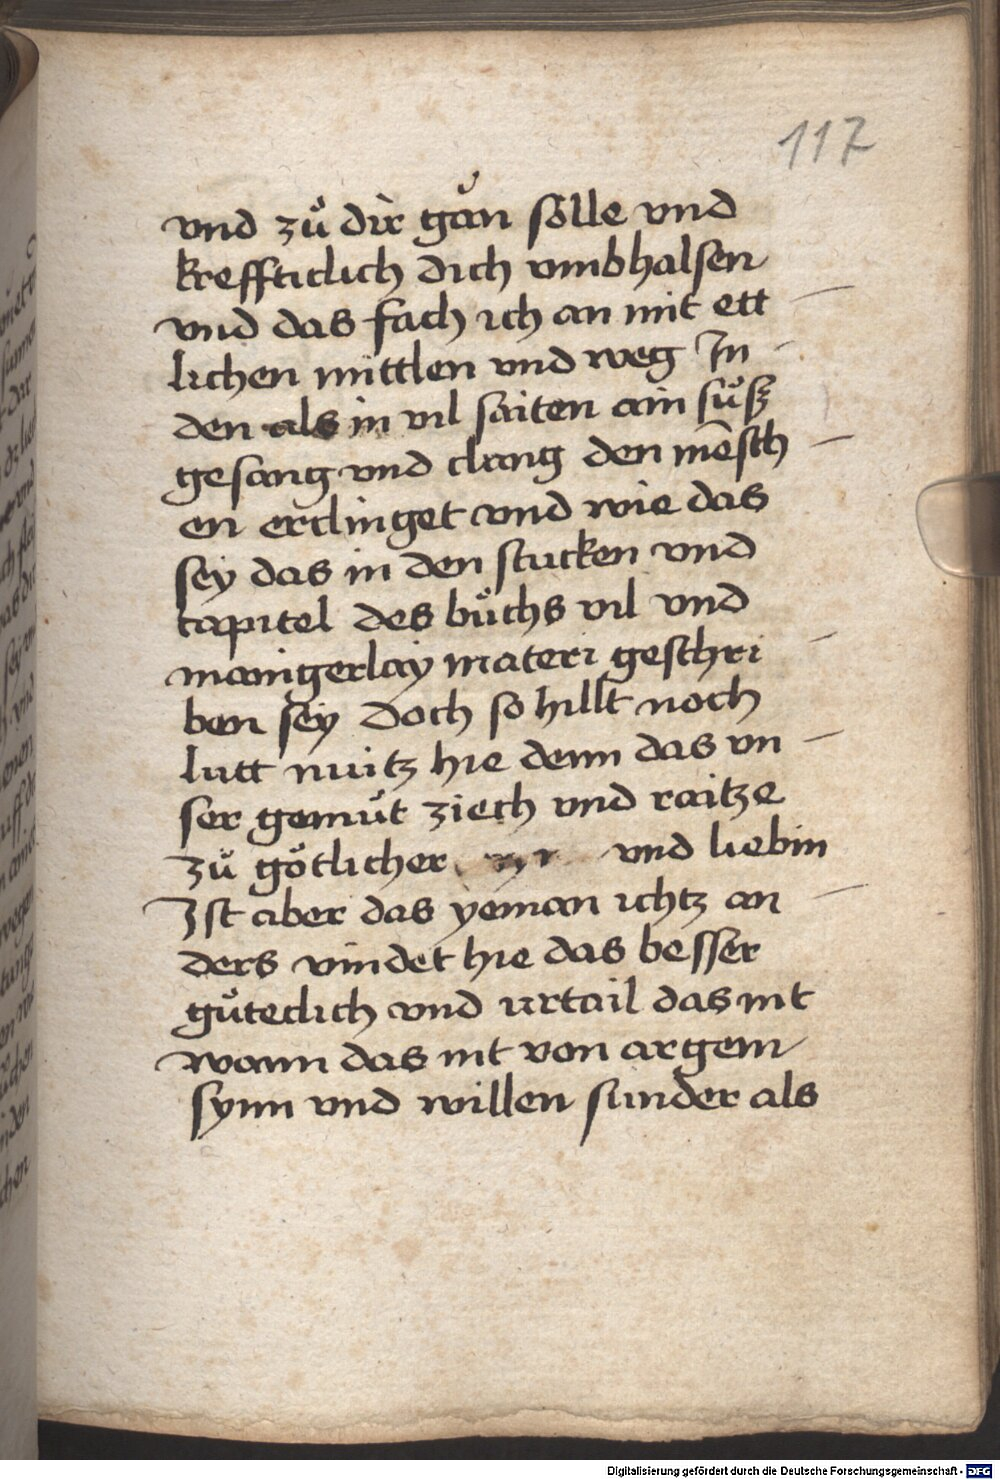 117
vnd zů dir gǎn sölle vnd
kreffticlich dich vmbhalsen
vnd das fach ich an mit ett
lichen mittlen vnd weg In
den als in vil saiten ain sůsz
gesang vnd clang den mēsch
en erclinget vnd wie das
sey das in den stucken vnd
capitel des bůchs vil vnd
maingerlay materi geschri
ben sey Doch so hillt noch
lutt nuitz hie denn das vn
ser gemůt ziech vnd raitze
zů götlicher vnd liebin
Ist aber das yeman ichtz an
ders vindet hie das besser
gůteclich vnd urtail das nit
wann das nit von argem
synn vnd willen sunder als
Digitalisierung gefördert durch die Deutsche Forschungsgemeinschaft - DFG